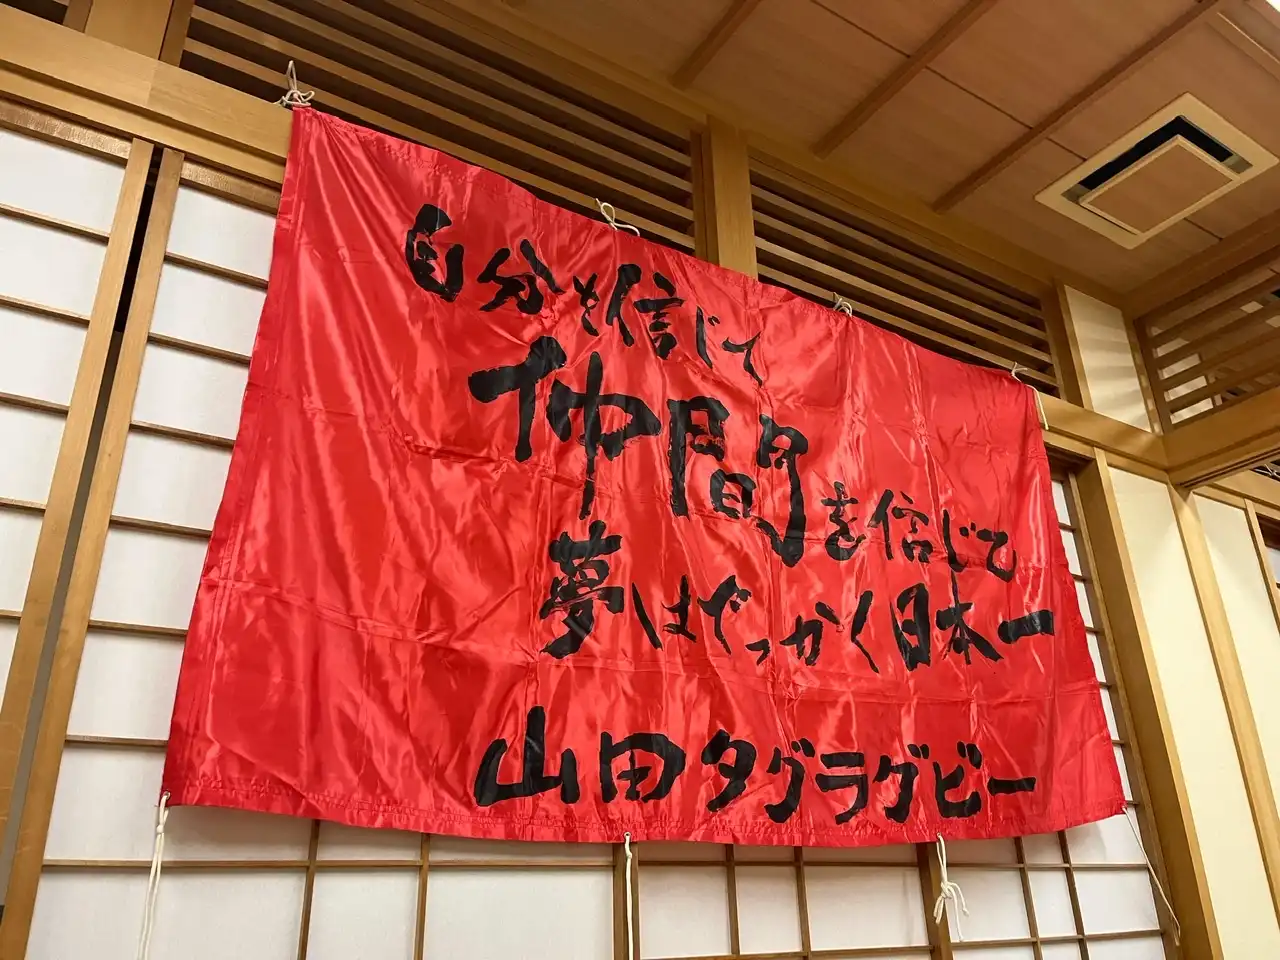 自分を信じて
仲間を信じて
夢はでっかく日本一
山田タグラグビー